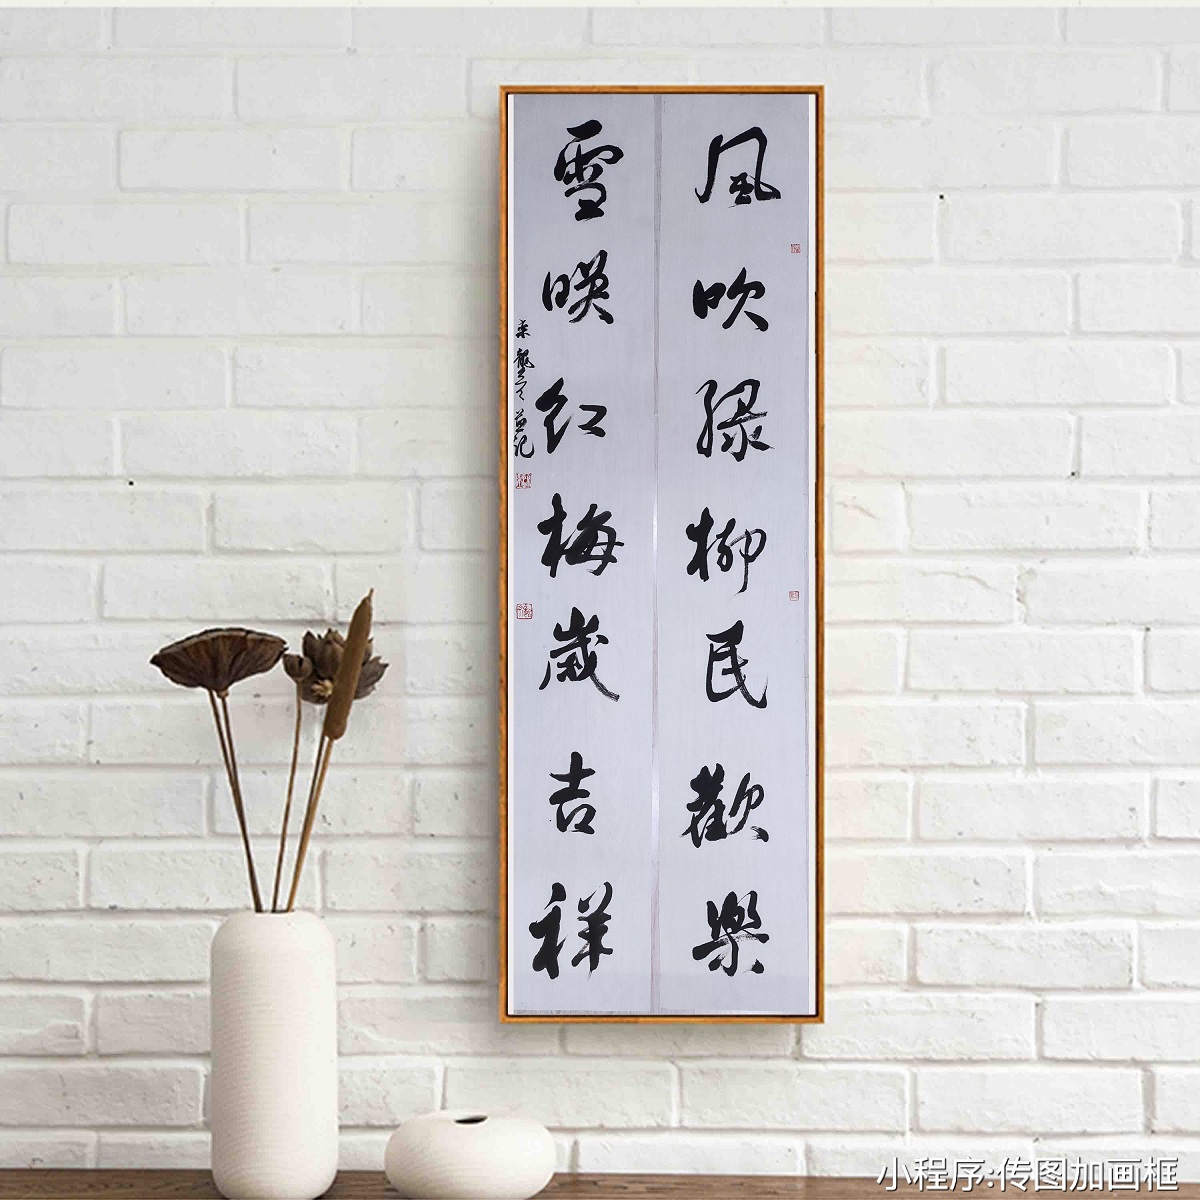 風吹绿柳民歡樂
雪映红梅歲吉祥
小程序:传图加画框